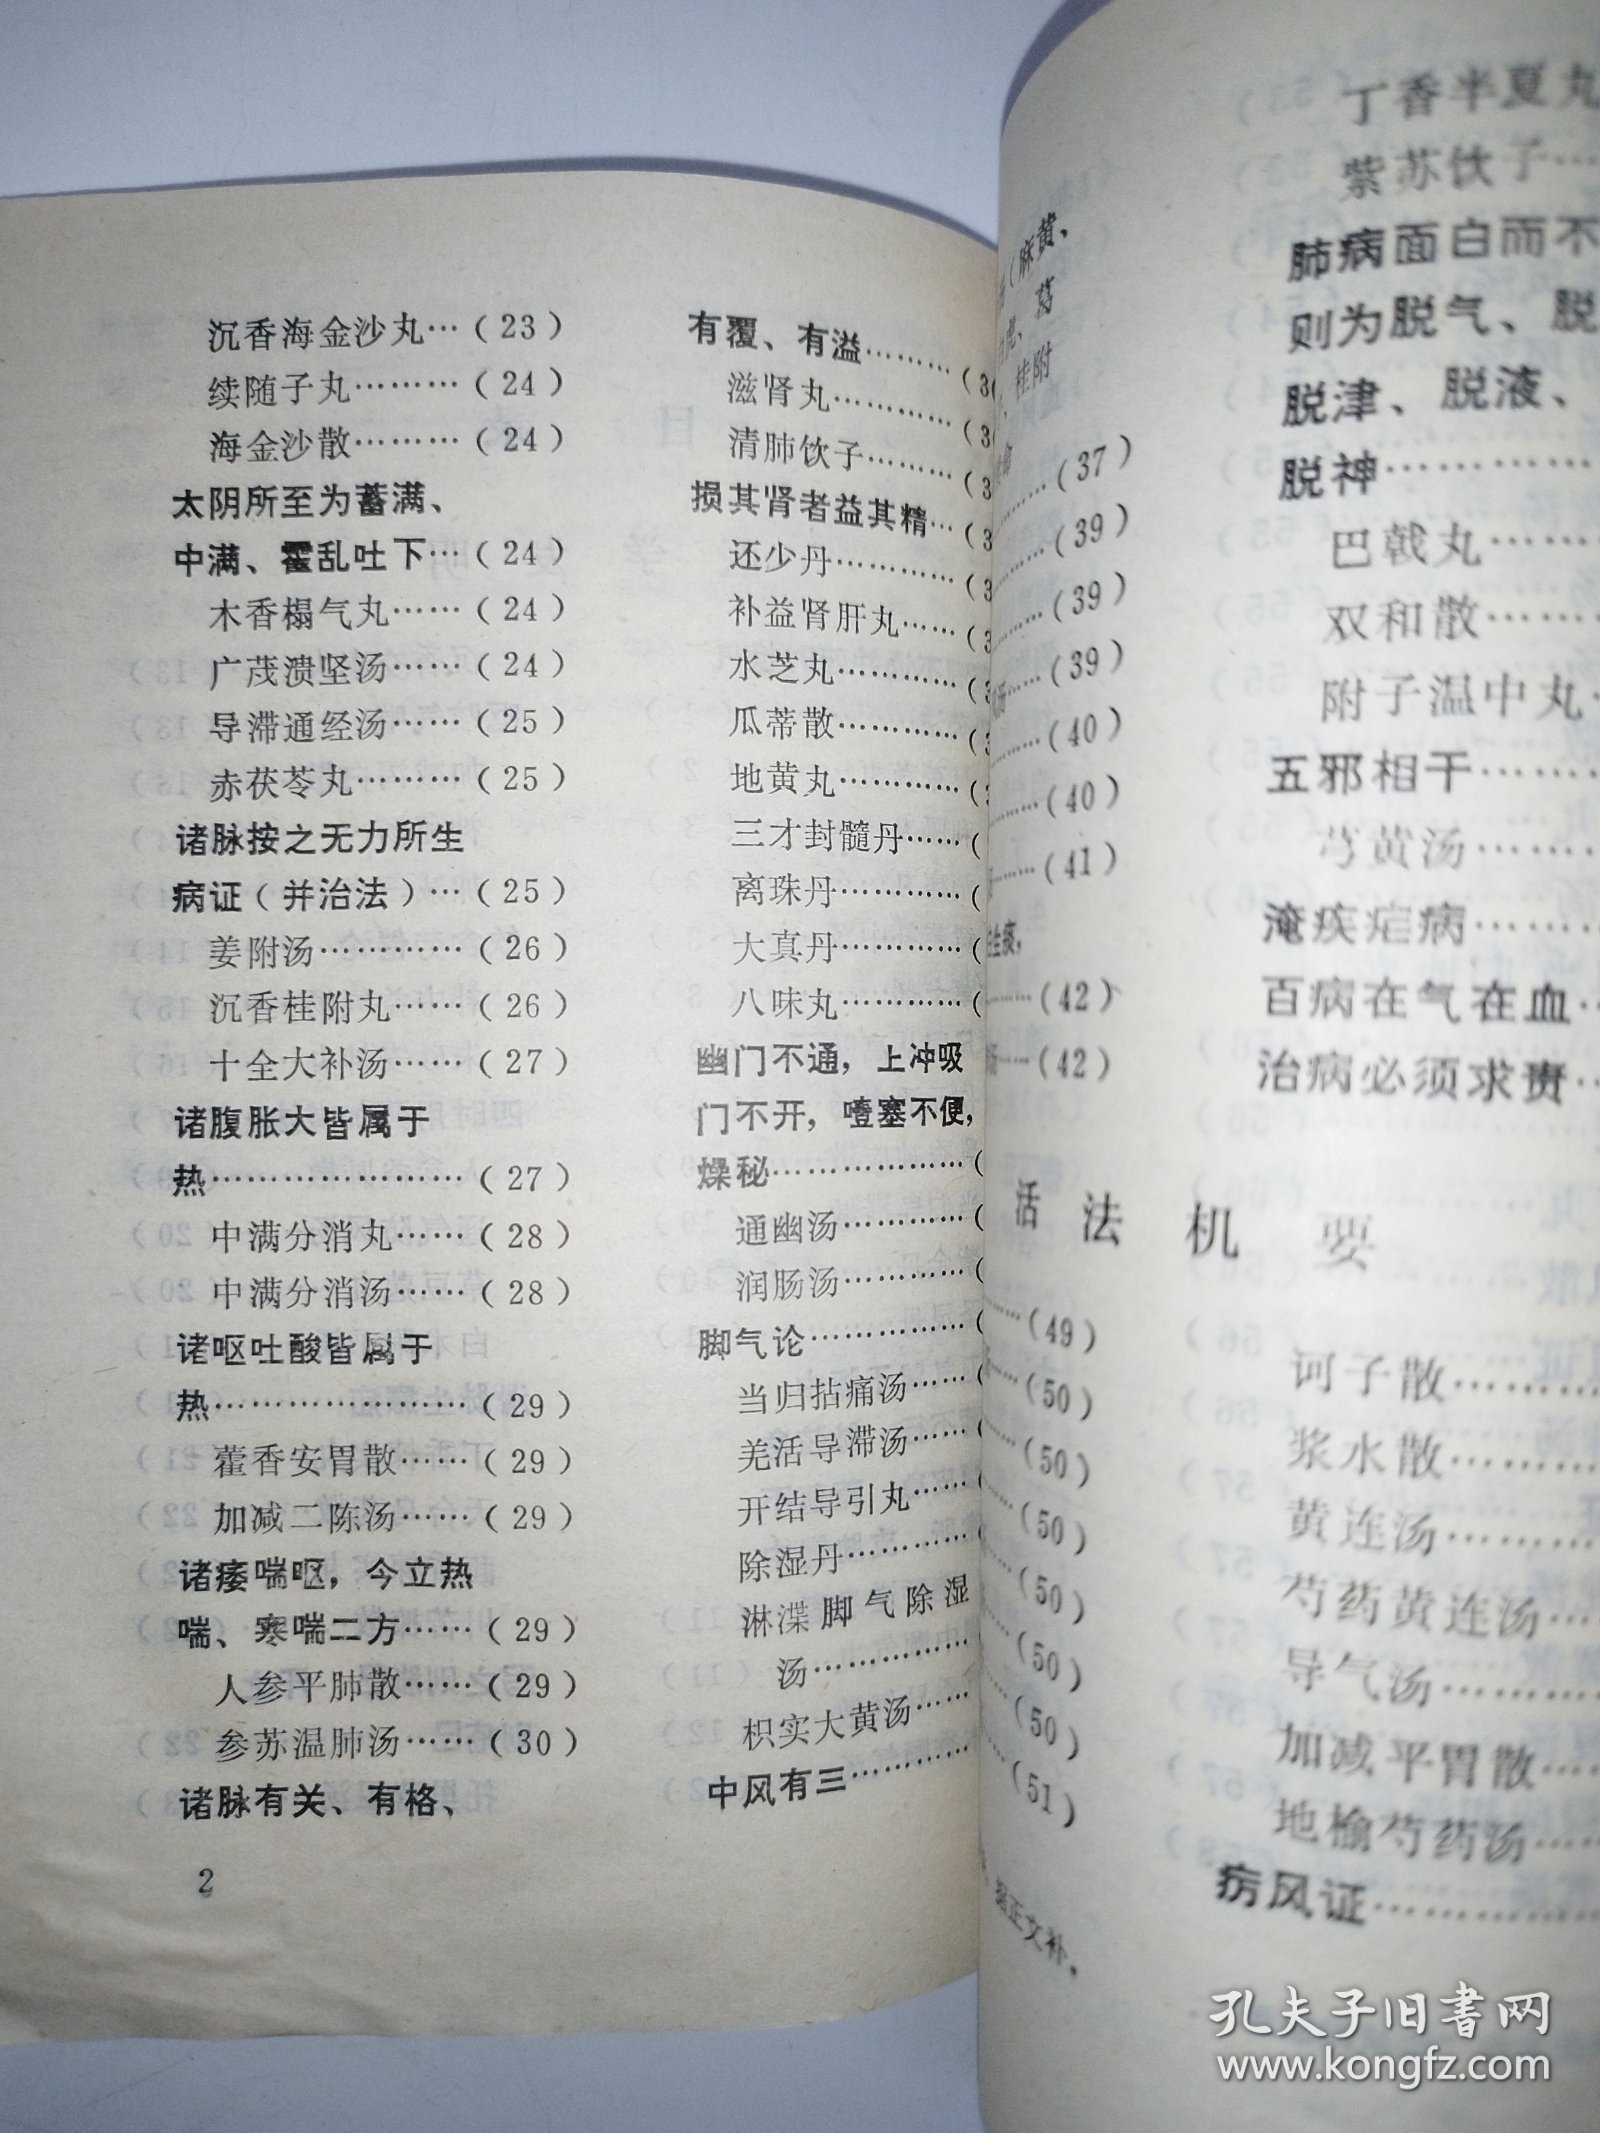 沉香海金沙丸…(23)
续随子丸………(24)
海金沙散………(24)
太阴所至为蓄满、
中满、霍乱吐下…(24)
木香榻气丸……(24)
广茂溃坚汤……(24)
导滞通经汤……(25)
赤茯苓丸………(25)
诸脉按之无力所生
病证(并治法)…(25)
姜附汤…………(26)
沉香桂附丸……(26)
十全大补汤……(27)
诸腹胀大皆属于
热…………………(27)
中满分消丸……(28)
中满分消汤……(28)
诸呕吐酸皆属于
热…………………(29)
藿香安胃散……(29)
加减二陈汤……(29)
诸痿喘呕，今立热
喘、寒喘二方……(29)
人参平肺散……(29)
参苏温肺汤……(30)
诸脉有关、有格、
2
有覆、有溢………(3
滋肾丸…………(3
清肺饮子………(3
损其肾者益其精…(3
还少丹…………(3
补益肾肝丸……(3
水芝丸…………(3
瓜蒂散…………(3
地黄丸…………(3
三才封髓丹……(
离珠丹…………(
大真丹…………(
八味丸…………(
幽门不通，上冲吸
门不开，噎塞不便，
燥秘………………(
通幽汤…………(
润肠汤…………(
脚气论……………(
当归拈痛汤……(
羌活导滞汤……
开结导引丸……
除湿丹…………
淋渫脚气除湿
汤……………
枳实大黄汤……
中风有三…………
(麻黄、
葛
桂附
……(37)
……(39)
……(39)
……(39)
……(40)
……(40)
……(41)
……(42)
……(42)
丁香半夏丸
紫苏饮子…
肺病面白而不
则为脱气、脱
脱津、脱液、
脱神…………
巴戟丸………
双和散………
附子温中丸…
五邪相干………
芎黄汤………
淹疾疟病………
百病在气在血…
治病必须求责…
活法机要
……(49)
……(50)
……(50)
……(50)
……(50)
……(50)
……(50)
……(51)
据正文补。
诃子散………
浆水散………
黄连汤………
芍药黄连汤…
导气汤………
加减平胃散…
地榆芍药汤…
疠风证…………
孔夫子旧书网
www.kongfz.com